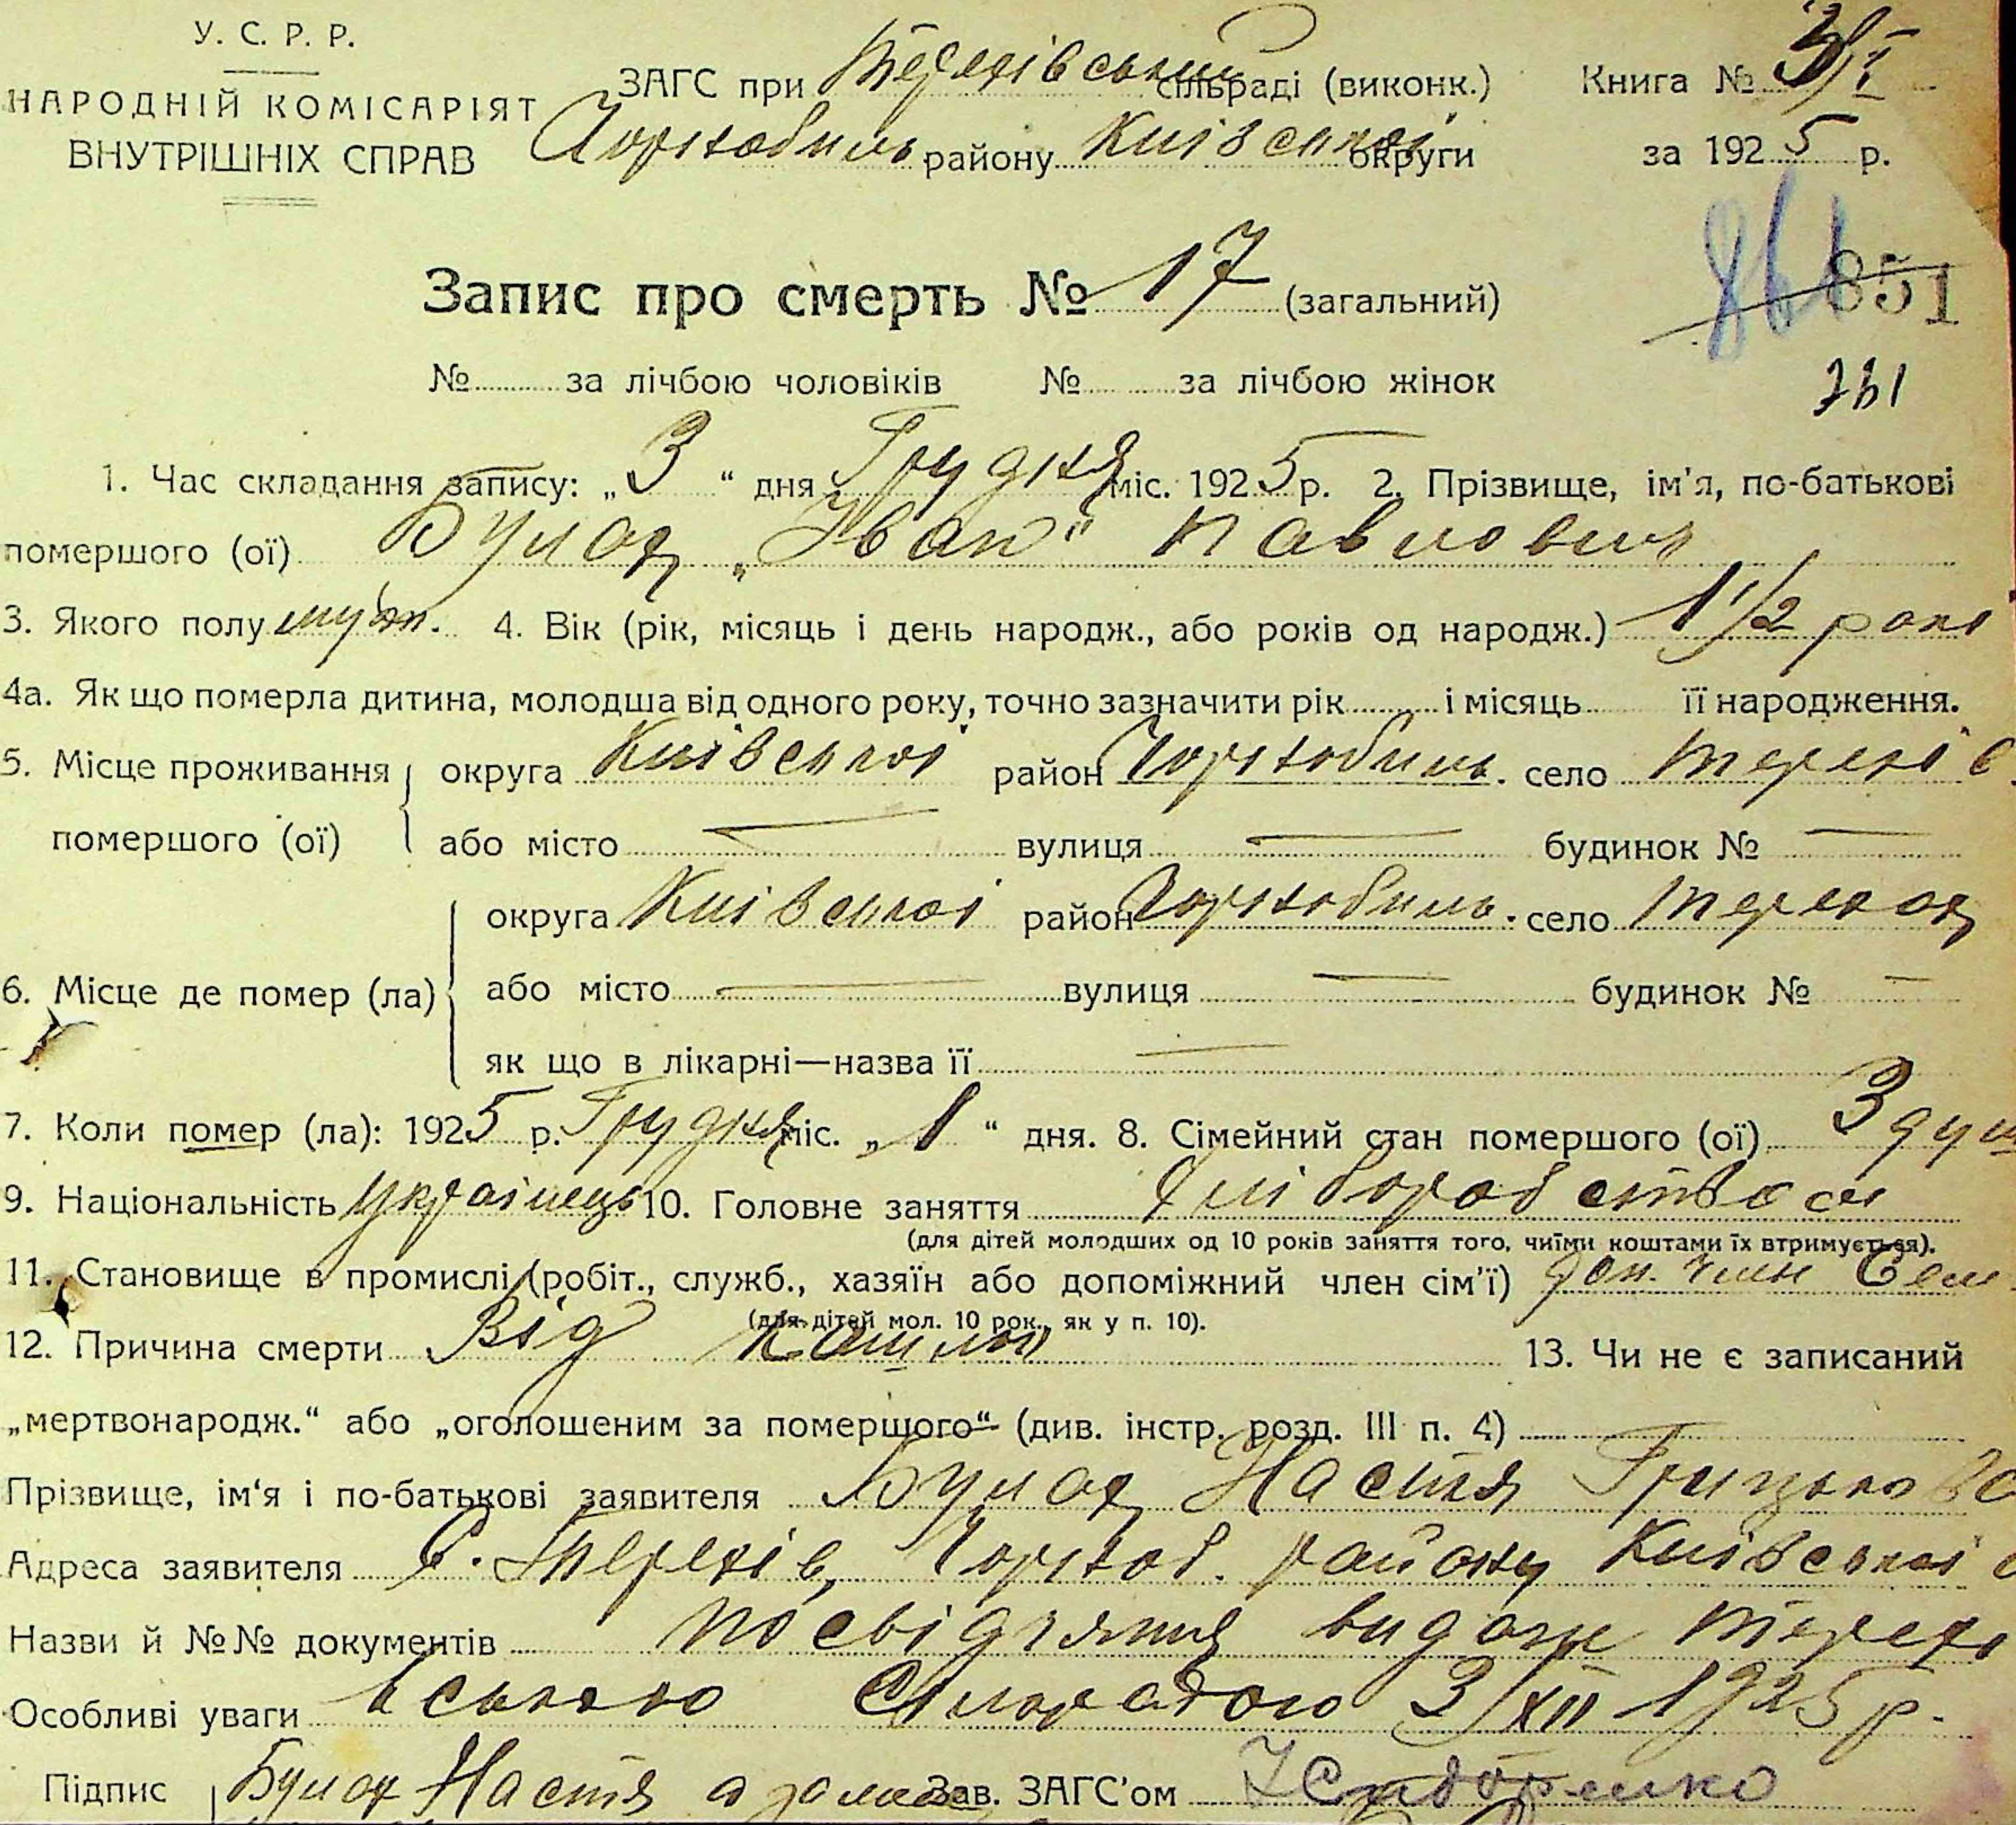 У. С. Р. Р.
НАРОДНІЙ КОМІСАРІЯТ
ВНУТРІШНІХ СПРАВ
ЗАГС при Терехівський сільраді (виконк.)
Чорнобиль району Київської округи
Книга №
за 1925 р.
Запис про смерть № 17 (загальний)
851
№ за лічбою чоловіків № за лічбою жінок
1. Час складання запису: „3“ дня Грудня міс. 1925 р. 2. Прізвище, ім'я, по-батькові
помершого (ої) „Іван“ Павлович
3. Якого полу муж. 4. Вік (рік, місяць і день народж., або років од народж.) 1 1/2 рокі
4а. Як що померла дитина, молодша від одного року, точно зазначити рік і місяць її народження.
5. Місце проживання помершого (ої) округа Київської район Чорнобиль. село Терехів
або місто — вулиця — будинок № —
6. Місце де помер (ла) округа Київської район Чорнобиль. село
або місто — вулиця — будинок № —
як що в лікарні—назва її —
7. Коли помер (ла): 1925 р. Грудня міс. „1“ дня. 8. Сімейний стан помершого (ої) 3 душ
9. Національність Українець 10. Головне заняття Хліборобством
(для дітей молодших од 10 років заняття того, чиїми коштами їх втримується).
11. Становище в промислі (робіт., служб., хазяїн або допоміжний член сім'ї) доп. член Сем
(для дітей мол. 10 рок., як у п. 10).
12. Причина смерти Від кашлю 13. Чи не є записаний
„мертвонародж.“ або „оголошеним за помершого“ (див. інстр. розд. III п. 4)
Прізвище, ім'я і по-батькові заявителя Настя
Адреса заявителя С. Терехів, Чорноб. району Київської
Назви й №№ документів посвідчення видане Терехі
Особливі уваги вською Сільрадою 3/XII 1925 р.
Підпис Настя Зав. ЗАГС'ом